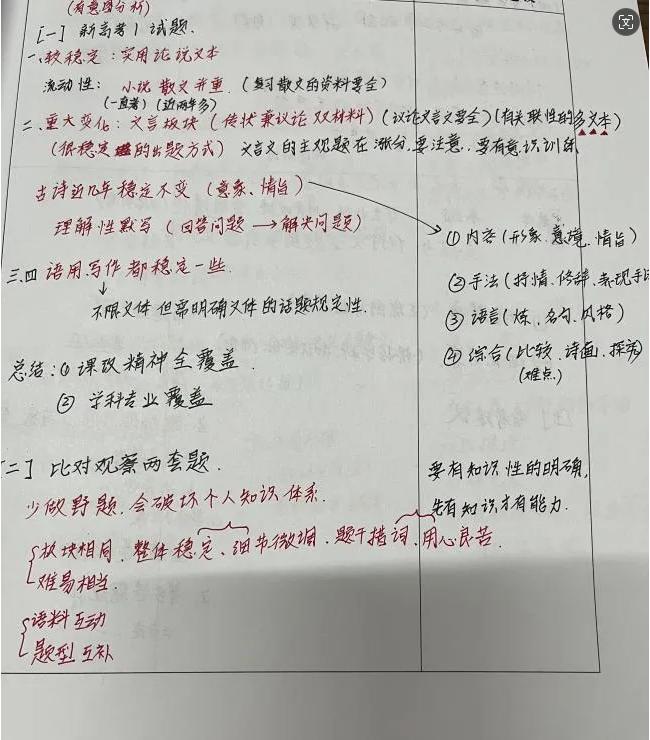 (有意图分析)
[一] 新高考1试题.
一、较稳定：实用论说文本
流动性：小说 散文并重.(复习散文的资料要全)
(一直考)(近两年多)
二、重大变化：文言板块(传状兼议论 双材料)(议论文言文要全)(有关联性的多文本)
(很稳定的出题方式) 文言文的主观题在涨分,要注意,要有意识训练
古诗近几年稳定不变 (意象、情旨)
理解性默写 (回答问题→解决问题)
①内容(形象.意境.情旨)
三.四 语用.写作都稳定一些.
②手法(抒情.修辞.表现手法
不限文体 但需明确文体的话题规定性.
③语言(炼.名句.风格)
总结：①课改精神全覆盖.
④综合(比较.诗画.探究)
(难点)
②学科专业覆盖
[二] 比对观察两套题.
要有知识性的明确,
少做野题.会破坏个人知识体系.
先有知识才有能力.
板块相同.整体稳定、细节微调、题干措词.用心良苦.
难易相当.
语料互动
题型互补